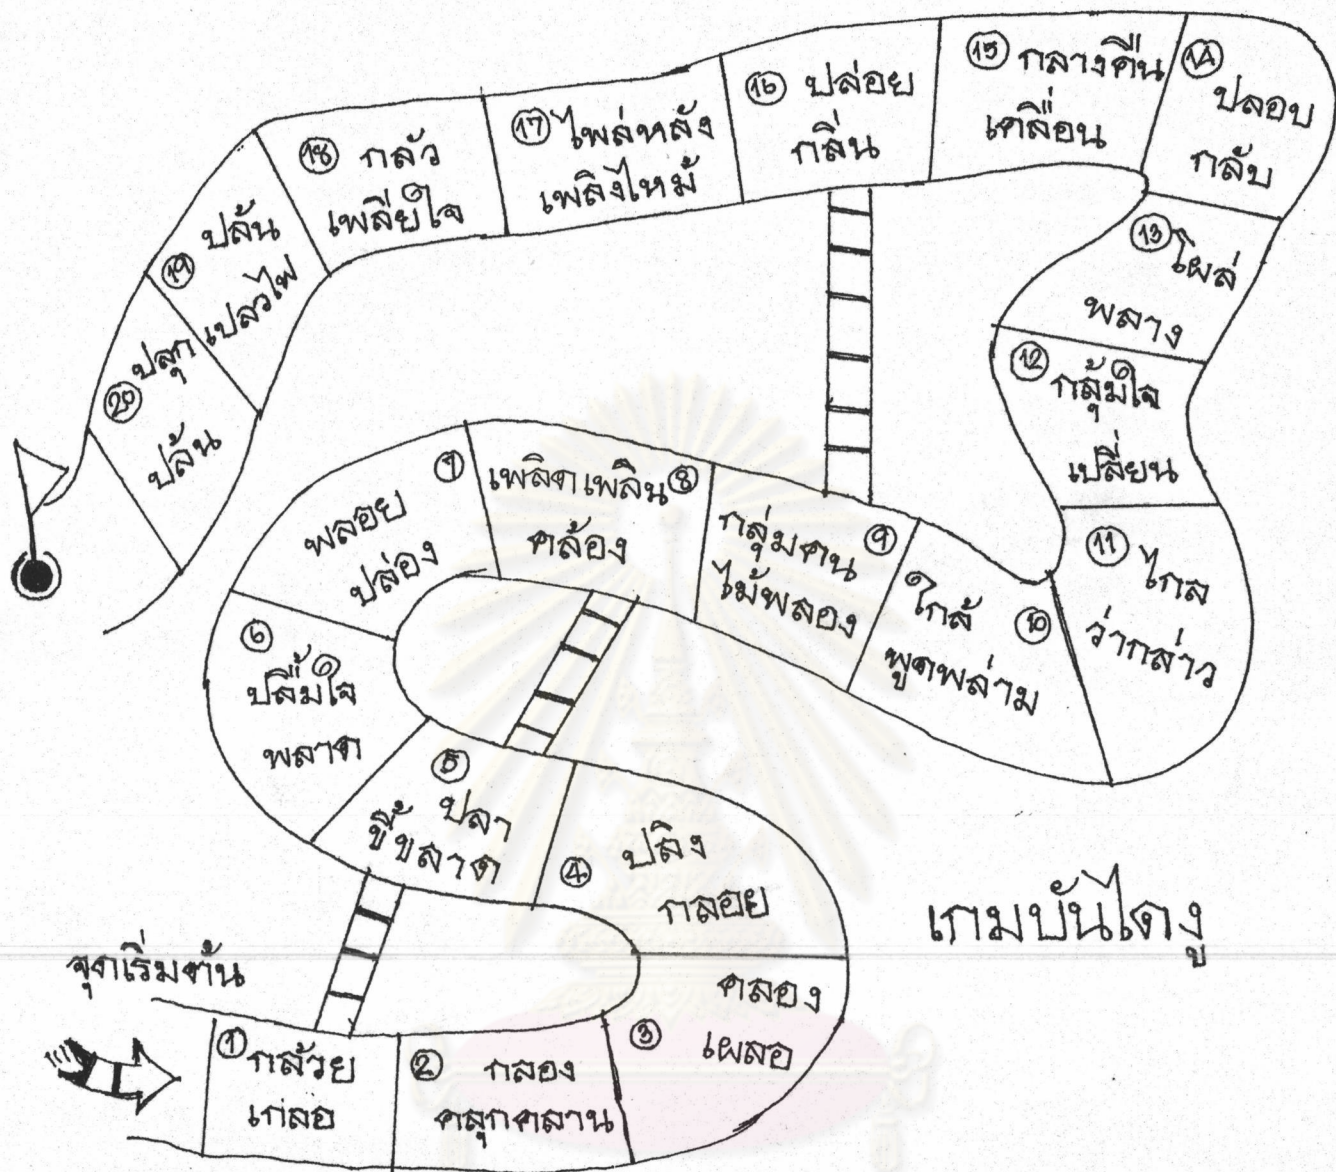 จุดเริ่มต้น
① กล้วย
เกลอ
② กลอง
คลุกคลาน
③ คลอง
เผลอ
④ ปลิง
กลอย
⑤ ปลา
ขี้ขลาด
⑥ ปลื้มใจ
พลาด
⑦ พลอย
ปล่อง
⑧ เพลิดเพลิน
คล้อง
⑨ กลุ่มคน
ไม้พลอง
⑩ ใกล้
พูดพล่าม
⑪ ไกล
ว่ากล่าว
⑫ กลุ้มใจ
เปลี่ยน
⑬ โผล่
พลาง
⑭ ปลอบ
กลับ
⑮ กลางคืน
เคลื่อน
⑯ ปล่อย
กลิ่น
⑰ ไพล่หลัง
เพลิงไหม้
⑱ กลัว
เพลียใจ
⑲ ปล้น
เปลวไฟ
⑳ ปลุก
ปล้น
เกมบันไดงู